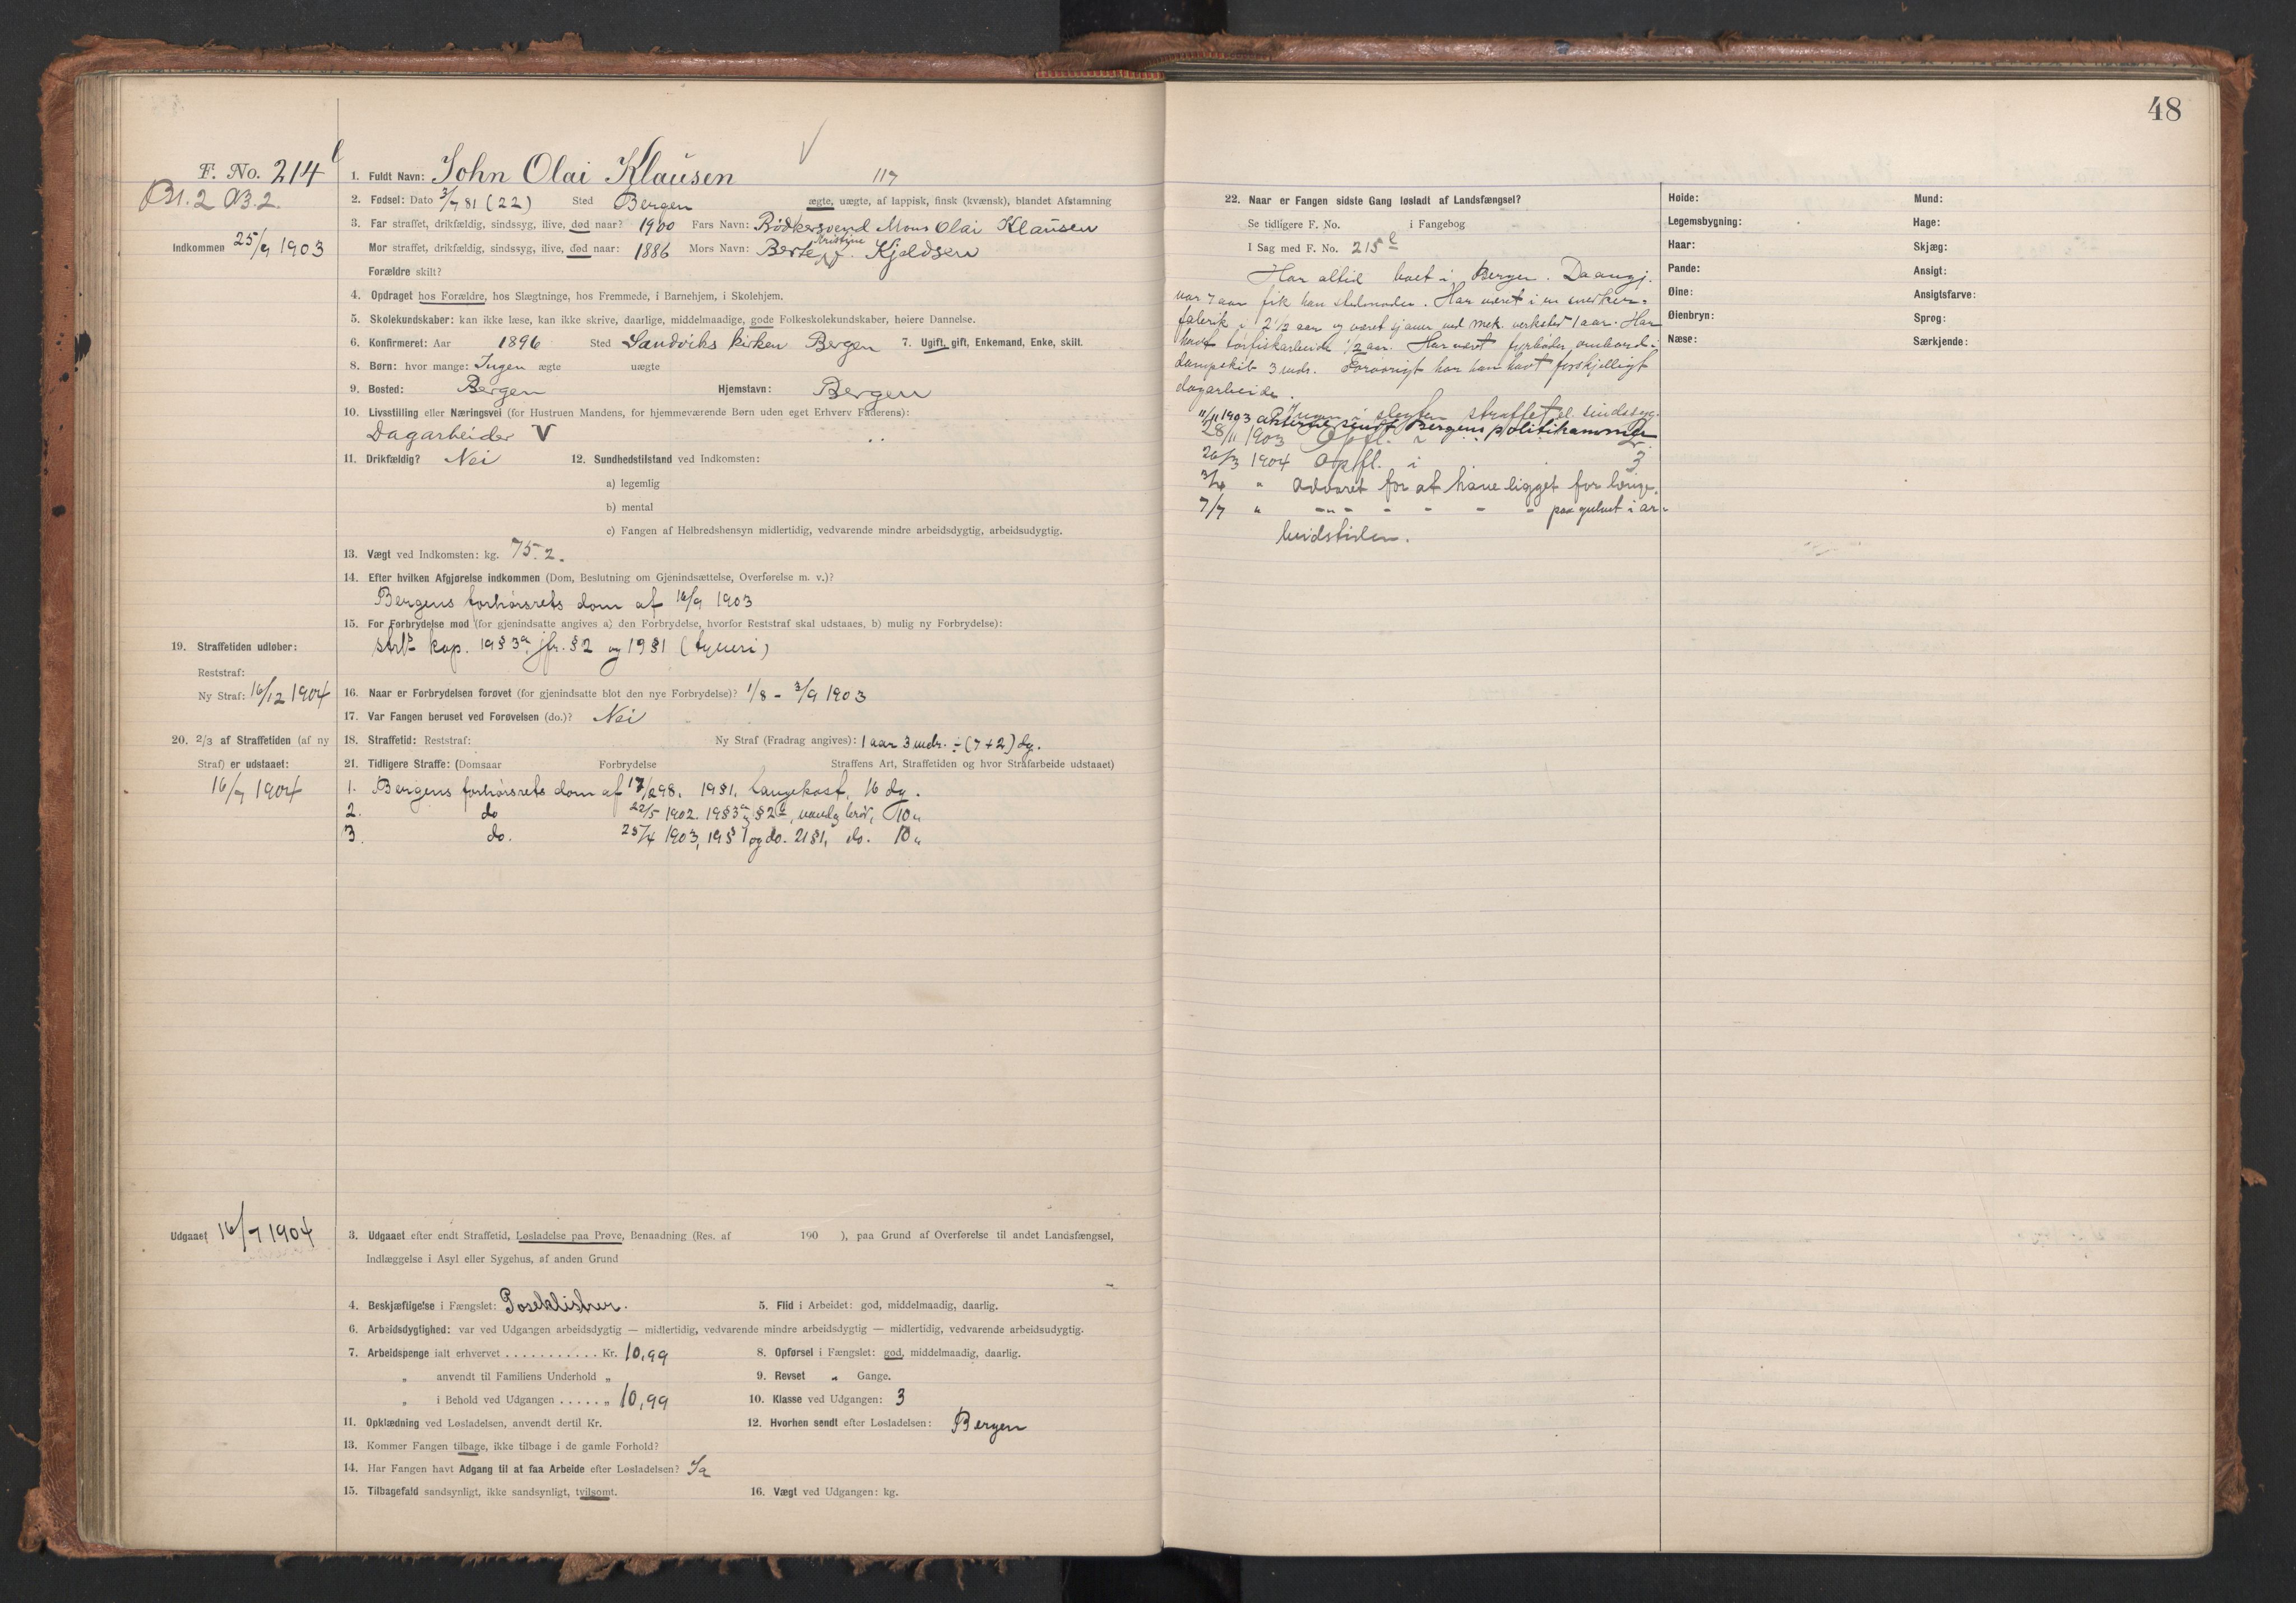 48
F. No. 214 l
Bl. 2 AB. 2.
Indkommen 25/9 1903
1. Fuldt Navn: John Olai Klausen 117
2. Fødsel: Dato 3/7 81 (22) Sted Bergen ægte, uægte, af lappisk, finsk (kvænsk), blandet Afstamning
3. Far straffet, drikfældig, sindssyg, ilive, død naar? 1900 Fars Navn: Bødkersvend Mons Olai Klausen
Mor straffet, drikfældig, sindssyg, ilive, død naar: 1886 Mors Navn: Berte Kristine Kjeldsen
Forældre skilt?
4. Opdraget hos Forældre, hos Slægtninge, hos Fremmede, i Barnehjem, i Skolehjem.
5. Skolekundskaber: kan ikke læse, kan ikke skrive, daarlige, middelmaadige, gode Folkeskolekundskaber, høiere Dannelse.
6. Konfirmeret: Aar 1896 Sted Sandviks kirken Bergen 7. Ugift, gift, Enkemand, Enke, skilt.
8. Børn: hvor mange: Ingen ægte uægte
9. Bosted: Bergen Hjemstavn: Bergen
10. Livsstilling eller Næringsvei (for Hustruen Mandens, for hjemmeværende Børn uden eget Erhverv Faderens):
Dagarbeider V
11. Drikfældig? Nei 12. Sundhedstilstand ved Indkomsten:
a) legemlig
b) mental
c) Fangen af Helbredshensyn midlertidig, vedvarende mindre arbeidsdygtig, arbeidsudygtig.
13. Vægt ved Indkomsten: kg. 75.2.
14. Efter hvilken Afgjørelse indkommen (Dom, Beslutning om Gjenindsættelse, Overførelse m. v.)?
Bergens forhørsrets dom af 16/9 1903
15. For Forbrydelse mod (for gjenindsatte angives a) den Forbrydelse, hvorfor Reststraf skal udstaaes, b) mulig ny Forbrydelse):
Strl. kap. 19 § 3a, jfr. § 2 og 19 § 1 (tyveri)
19. Straffetiden udløber:
Reststraf:
Ny Straf: 16/12 1904
16. Naar er Forbrydelsen forøvet (for gjenindsatte blot den nye Forbrydelse)? 1/8 - 3/9 1903
17. Var Fangen beruset ved Forøvelsen (do.)? Nei
20. 2/3 af Straffetiden (af ny
Straf) er udstaaet:
16/7 1904
18. Straffetid: Reststraf: Ny Straf (Fradrag angives): 1 aar 3 mdr. ÷ (7+2) dg.
21. Tidligere Straffe: (Domsaar Forbrydelse Straffens Art, Straffetiden og hvor Strafarbeide udstaaet)
1. Bergens forhørsrets dom af 17/2 98, 19 § 1, fangekost, 16 dg.
2. do 22/5 1902. 19 § 3a, § 2, vand og brød, 10 "
3. do. 25/4 1903, 19 § 1 og do. 21 § 1, do. 10 "
Udgaaet 16/7 1904
3. Udgaaet efter endt Straffetid, Løsladelse paa Prøve, Benaadning (Res. af 190 ), paa Grund af Overførelse til andet Landsfængsel,
Indlæggelse i Asyl eller Sygehus, af anden Grund
4. Beskjæftigelse i Fængslet: Poseklistrer. 5. Flid i Arbeidet: god, middelmaadig, daarlig.
6. Arbeidsdygtighed: var ved Udgangen arbeidsdygtig — midlertidig, vedvarende mindre arbeidsdygtig — midlertidig, vedvarende arbeidsudygtig.
7. Arbeidspenge ialt erhvervet . . . . . . . . . . . Kr. 10,99 8. Opførsel i Fængslet: god, middelmaadig, daarlig.
" anvendt til Familiens Underhold " 9. Revset " Gange.
" i Behold ved Udgangen . . . . . " 10,99 10. Klasse ved Udgangen: 3
11. Opklædning ved Løsladelsen, anvendt dertil Kr. 12. Hvorhen sendt efter Løsladelsen: Bergen
13. Kommer Fangen tilbage, ikke tilbage i de gamle Forhold?
14. Har Fangen havt Adgang til at faa Arbeide efter Løsladelsen? Ja
15. Tilbagefald sandsynligt, ikke sandsynligt, tvilsomt. 16. Vægt ved Udgangen: kg.
22. Naar er Fangen sidste Gang løsladt af Landsfængsel?
Se tidligere F. No. i Fangebog
I Sag med F. No. 215 l
Har altid boet i Bergen. Da angj.
var 7 aar fik han stedmoder. Har været i en snedker-
fabrik i 2 1/2 aar og været sjauer ved mek. verksted 1 aar. Har
havt tørfiskarbeide 1/2 aar. Har været fyrbøder ombord i
dampskib 3 mdr. Forøvrigt har han havt forskjelligt
dagarbeide.
Ingen i slegten straffet el. sindssyg.
11/11 1903 akterne sendt Bergens politikammer
28/11 1903 Opfl. i 2
26/3 1904 Opfl. i 3
3/4 " Advaret for at have ligget for længe.
7/7 " -"- - - - - paa gulvet i ar-
beidstiden.
Høide:
Legemsbygning:
Haar:
Pande:
Øine:
Øienbryn:
Næse:
Mund:
Hage:
Skjæg:
Ansigt:
Ansigtsfarve:
Sprog:
Særkjende: